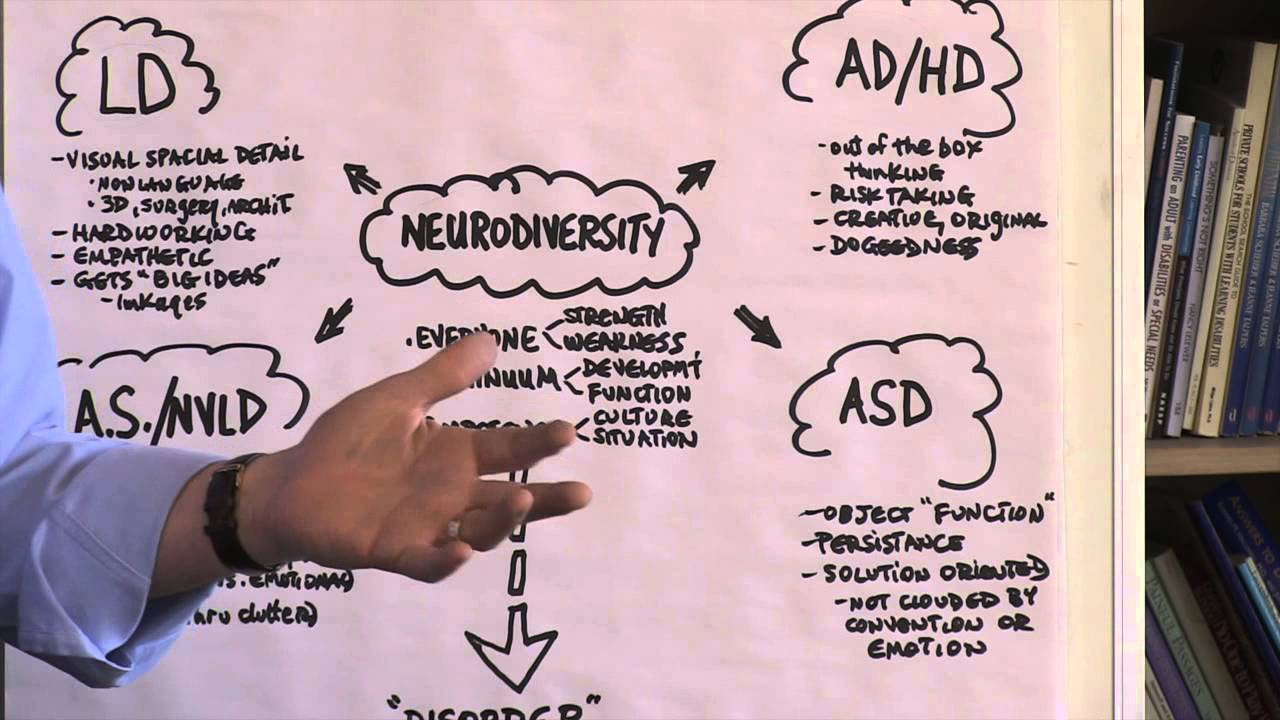 LD
- VISUAL SPACIAL DETAIL
• NON LANGUAGE
• 3D, SURGERY, ARCHIT
- HARDWORKING
- EMPATHETIC
- GETS "BIG IDEAS"
- linkages
AD/HD
- out of the box
thinking
- RISK TAKING
- CREATIVE, ORIGINAL
- DOGEEDNESS
NEURODIVERSITY
STRENGTH
WEAKNESS
DEVELOPMT
FUNCTION
CULTURE
SITUATION
A.S./NVLD
EMOTIONAL)
clutter)
ASD
- OBJECT "FUNCTION"
- PERSISTANCE
- SOLUTION ORIENTED
- NOT CLOUDED BY
CONVENTION OR
EMOTION
"DISORDER"
PARENTING an ADULT with DISABILITIES or SPECIAL NEEDS
SOMETHING'S NOT RIGHT
NANCY LELEWER
PRIVATE SCHOOLS FOR STUDENTS WITH LEARNING DISABILITIES
THE SCHOOL SEARCH GUIDE TO
ANSWERS TO
PASSAGES